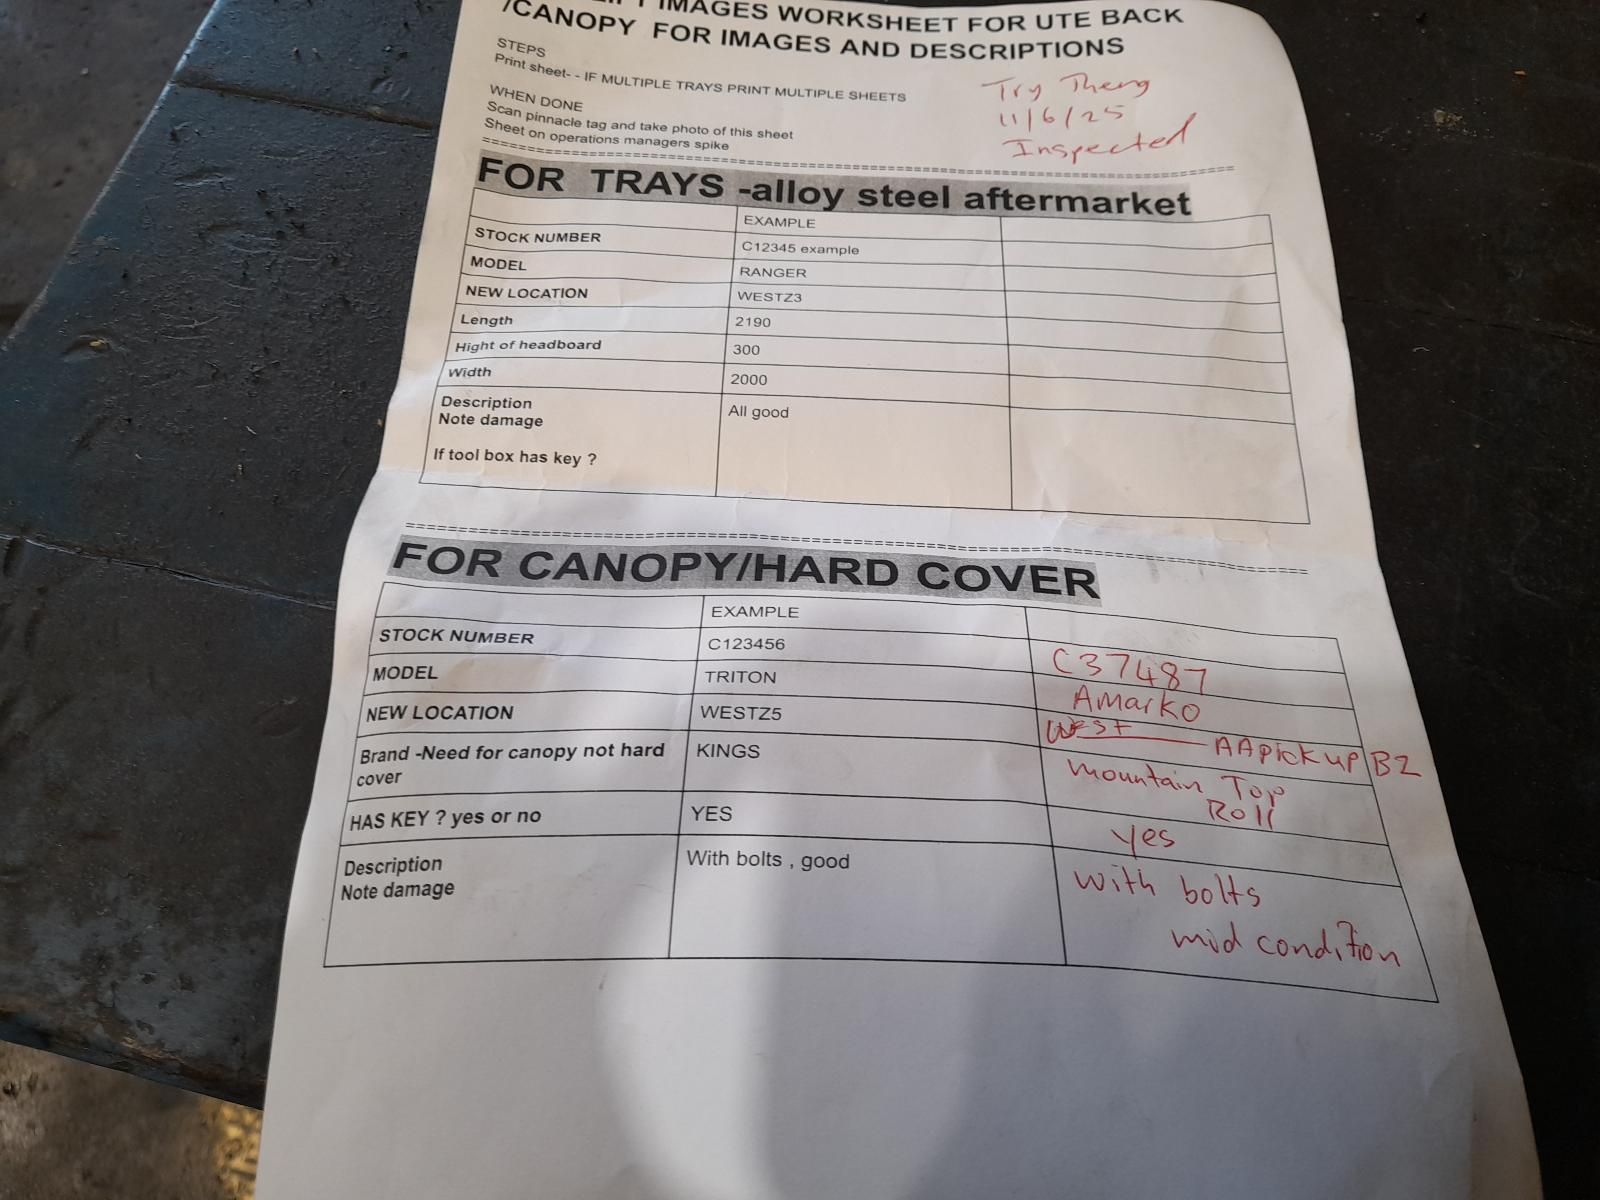 IMAGES WORKSHEET FOR UTE BACK
/CANOPY FOR IMAGES AND DESCRIPTIONS
STEPS
Print sheet- - IF MULTIPLE TRAYS PRINT MULTIPLE SHEETS
WHEN DONE
Scan pinnacle tag and take photo of this sheet
Sheet on operations managers spike
Try Theng
11/6/25
Inspected
FOR TRAYS -alloy steel aftermarket
EXAMPLE
STOCK NUMBER C12345 example
MODEL RANGER
NEW LOCATION WESTZ3
Length 2190
Hight of headboard 300
Width 2000
Description All good
Note damage
If tool box has key ?
FOR CANOPY/HARD COVER
EXAMPLE
STOCK NUMBER C123456 C37487
MODEL TRITON Amarko
NEW LOCATION WESTZ5 West AA pick up B2
Brand -Need for canopy not hard KINGS mountain Top
cover Roll
HAS KEY ? yes or no YES yes
Description With bolts , good with bolts
Note damage mid condition